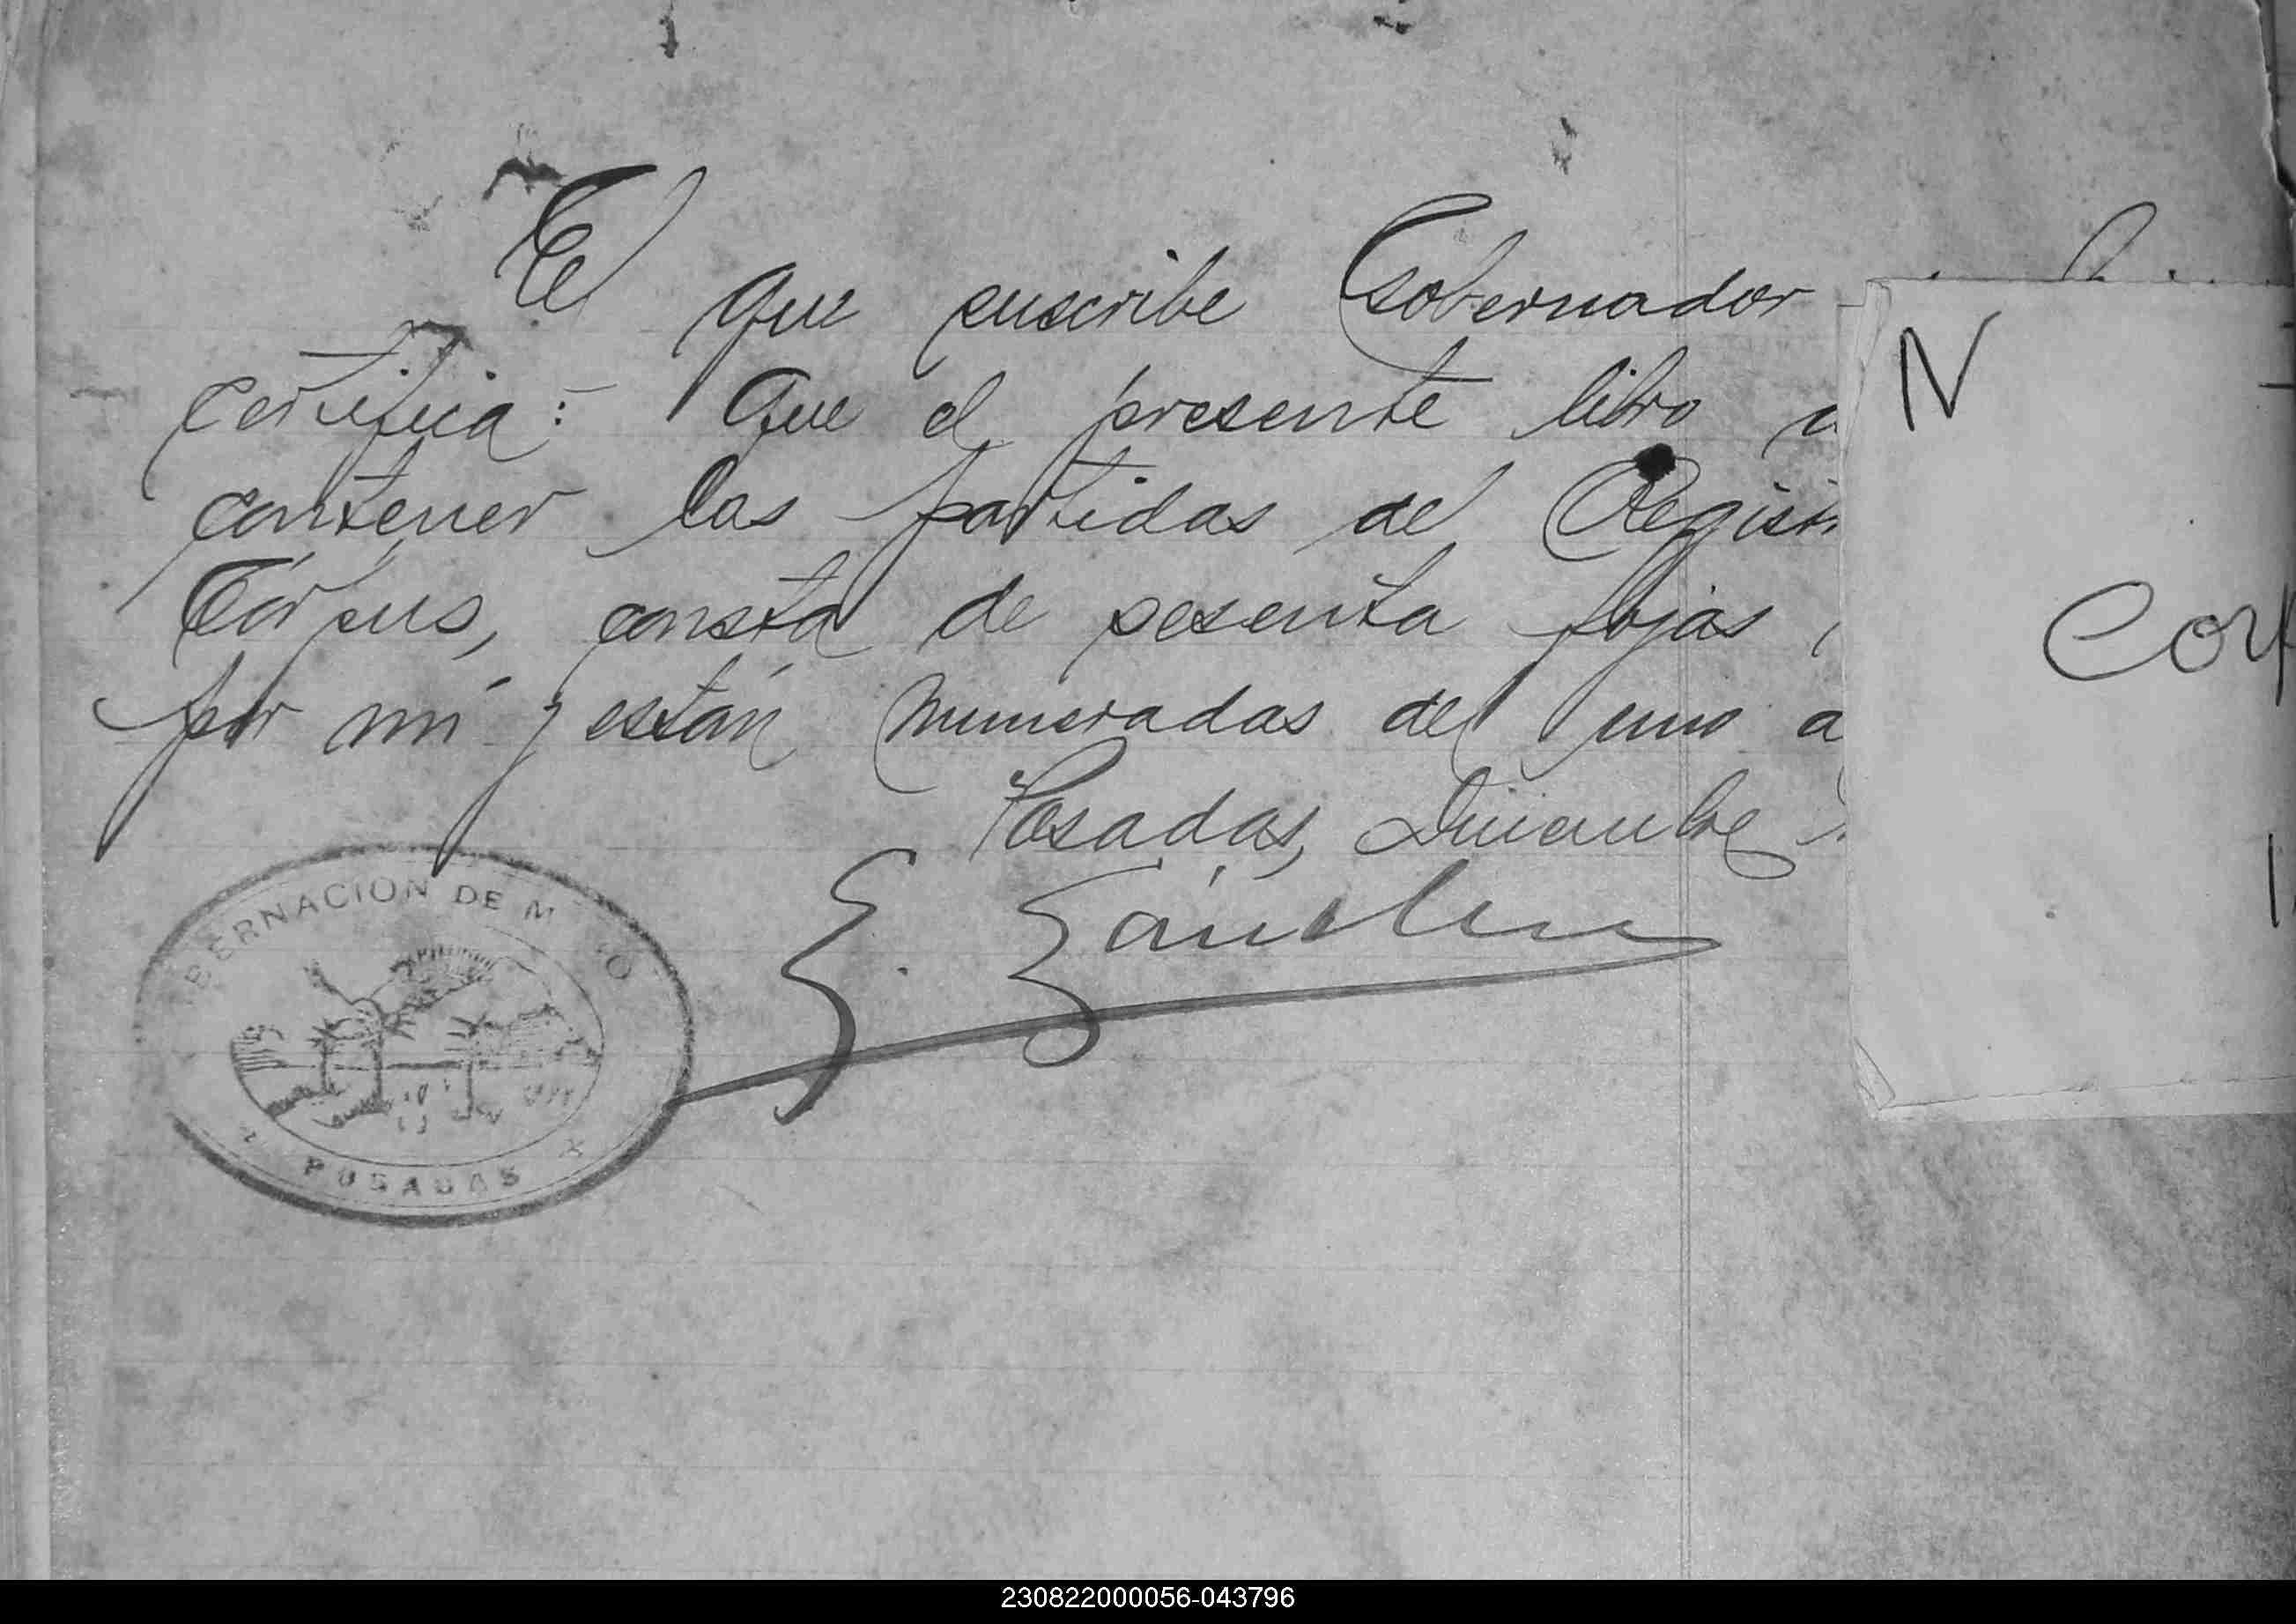 El que suscribe Gobernador
certifica: Que el presente libro
contener las partidas del Registr
Córpus, consta de sesenta fojas
por mí y están numeradas del uno a
Posadas, Diciembre
E.
BERNACION DE M
POSADAS
N
Cor
230822000056-043796